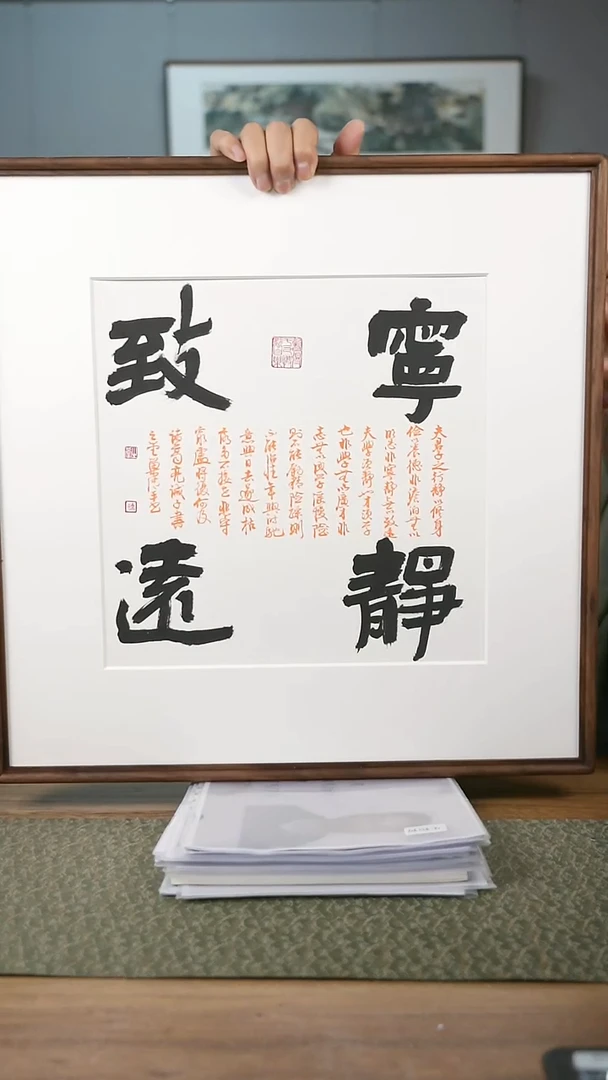 寧靜
致遠
夫君子之行靜以修身
儉以養德非澹泊無以
明志非寧靜無以致遠
夫學須靜也才須學
也非學無以廣才非
志無以成學淫慢
則不能勵精險躁則
不能治性年與時馳
意與日去遂成枯
落多不接世悲守
窮廬將復何及
諸葛亮誡子書